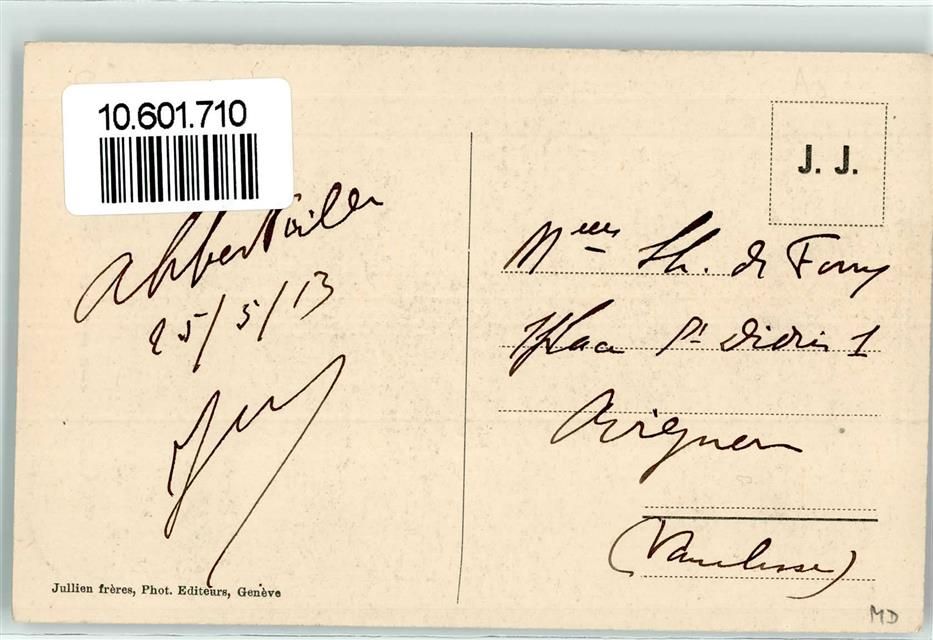 10.601.710
J. J.
Albertville
25/5/13
Mme Th. de Fony
Place St Didier 1
Avignon
(Vaucluse)
Jullien frères, Phot. Editeurs, Genève
MD